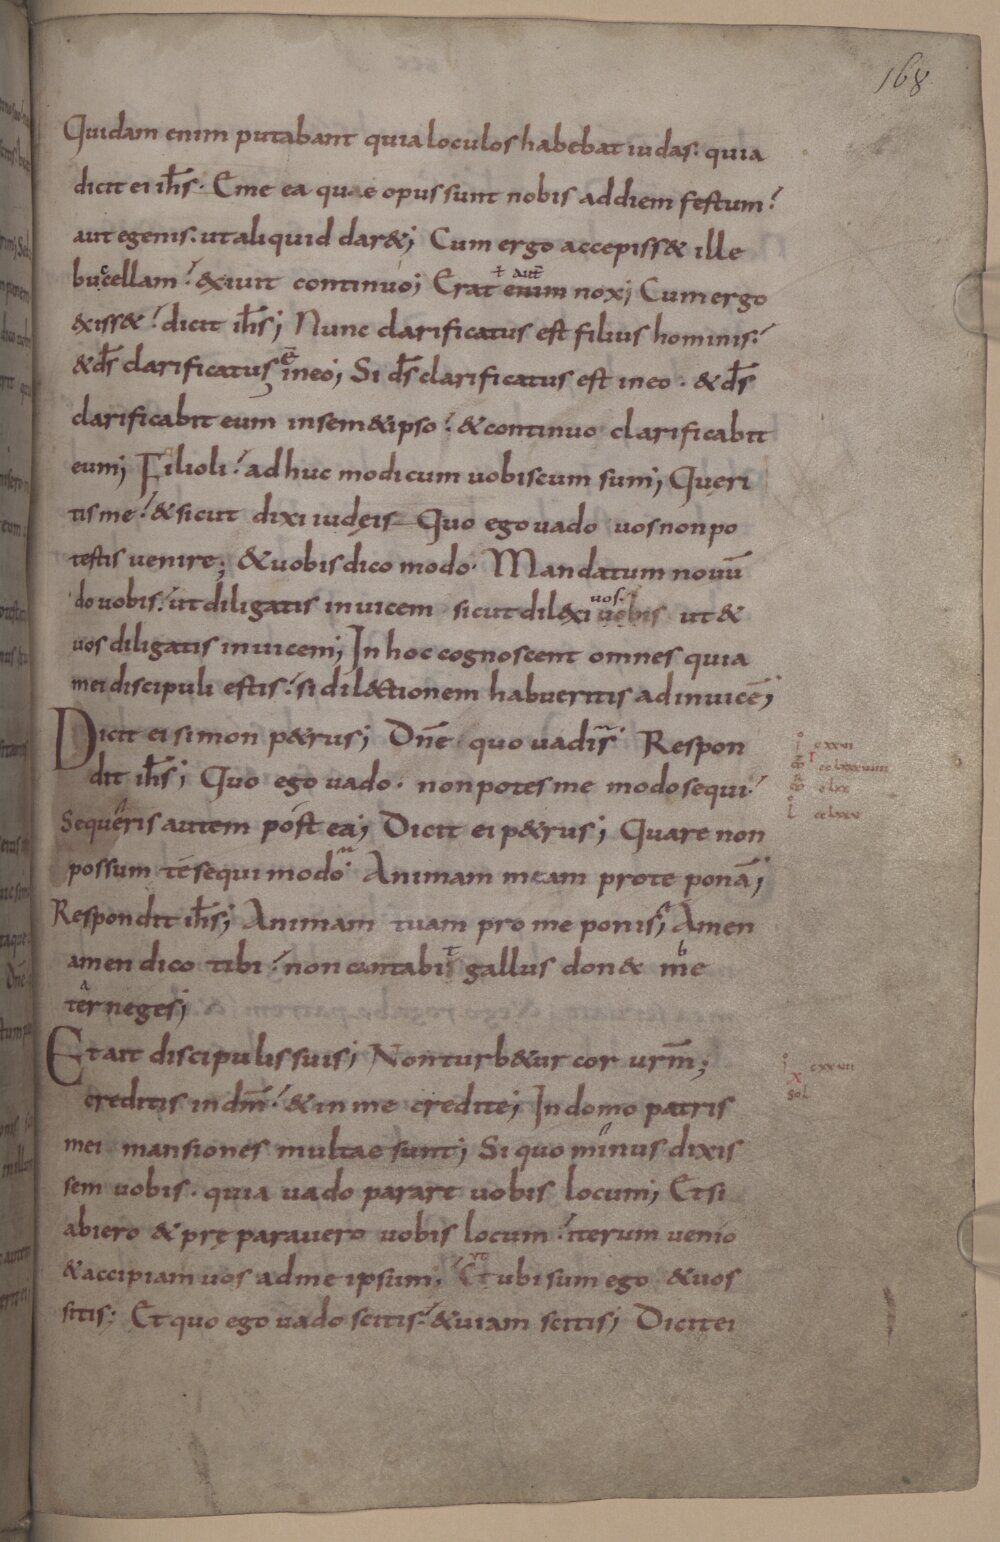 168
Quidam enim putabant quia loculos habebat iudas. quia
dicit ei ihs. Eme ea quae opus sunt nobis ad diem festum.
aut egenis. ut aliquid dar&; Cum ergo accepiss& ille
bucellam. &xiuit continuo; Erat enim nox; Cum ergo
ł aut̄
&xiss& dicit ih̄s; Nunc clarificatus est filius hominis.
& d̄s clarificatus ē in eo; Si d̄s clarificatus est in eo. & d̄s
clarificabit eum in sem&ipso. & continuo clarificabit
eum; Filioli. adhuc modicum uobiscum sum; Queri
tis me. & sicut dixi iudęis Quo ego uado uos non po
testis venire; & uobis dico modo. Mandatum nouū
do uobis. ut diligatis inuicem sicut dil&xi uobis ut &
uos.
uos diligatis inuicem; In hoc cognoscent omnes quia
mei discipuli estis. si dil&ctionem habueritis ad inuicē;
Dicit ei simon p&rus; Dn̄e quo uadis Respon
dit ih̄s; Quo ego uado. non potes me modo sequi.
Sequeris autem post ea; Dicit ei p&rus; Quare non
possum te sequi modo Animam meam pro te ponā;
Respondit ih̄s; Animam tuam pro me ponis; Amen
amen dico tibi. non cantabit gallus don& me
ter neges;
Et ait discipulis suis; Non turb&ur cor ur̄m;
creditis in dm̄. & in me credite; In domo patris
mei mansiones multae sunt; Si quo minus dixis
sem uobis. quia uado parare uobis locum; Et si
abiero & prę parauero uobis locum. iterum uenio
& accipiam uos ad me ipsum. Et ubi sum ego & uos
ut
sitis; Et quo ego uado scitis. & uiam scitis; Dicit ei
cxxvi
clxx
cxxvii
x
sol